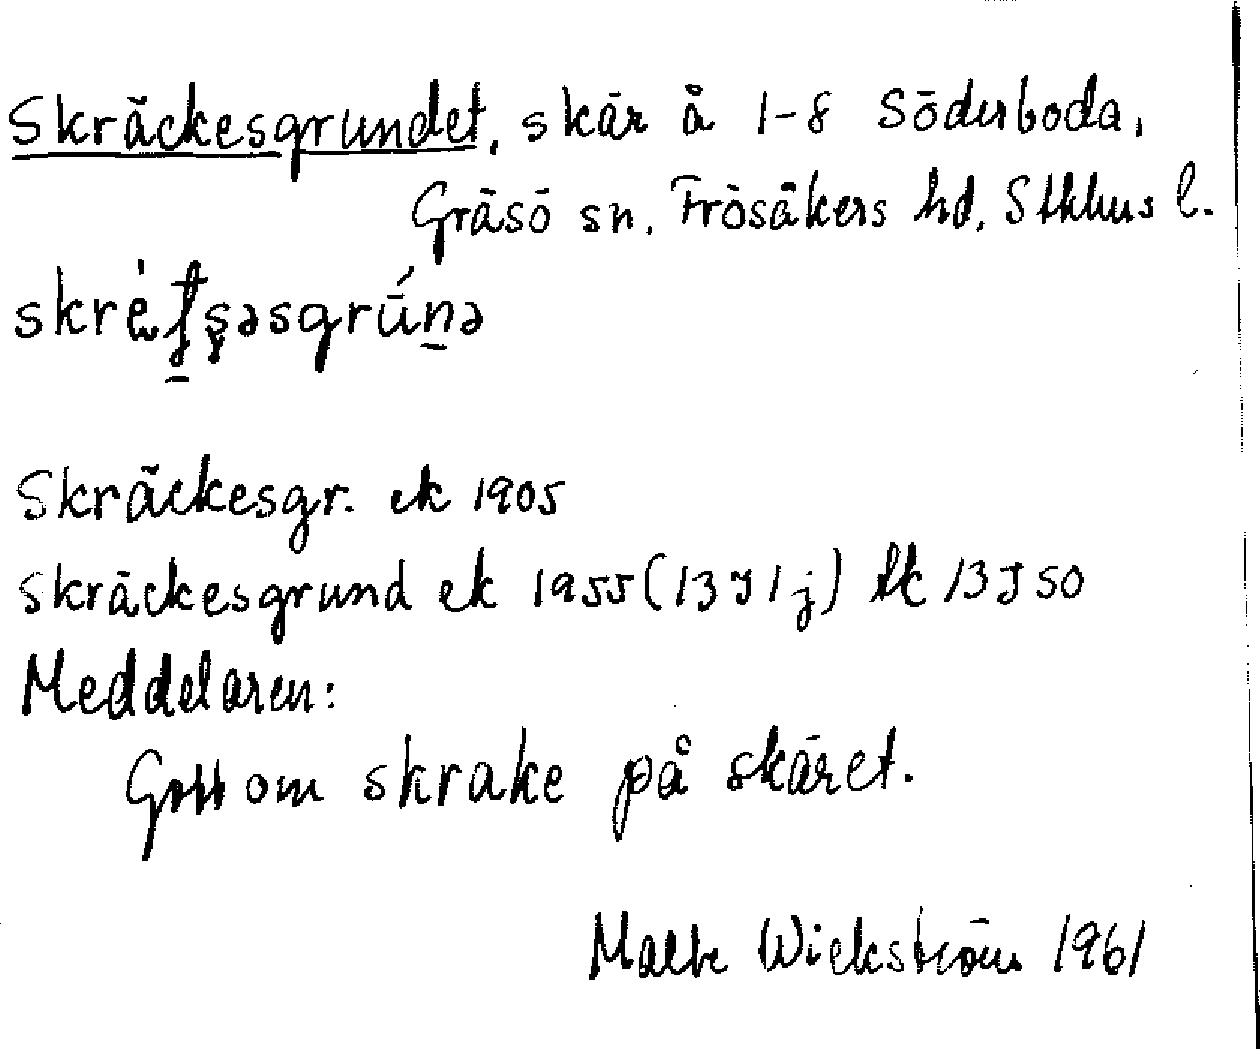 Skräckesgrundet, skär å 1-8 Söderboda,
Gräsö sn, Frösåkers hd, Sthlms l.
Skräckesgr. ek 1905
Skräckesgrund ek 1955 (13 J 1 j) tk 13 J SO
Meddelaren:
Gott om skrake på skäret.
Malte Wickström 1961